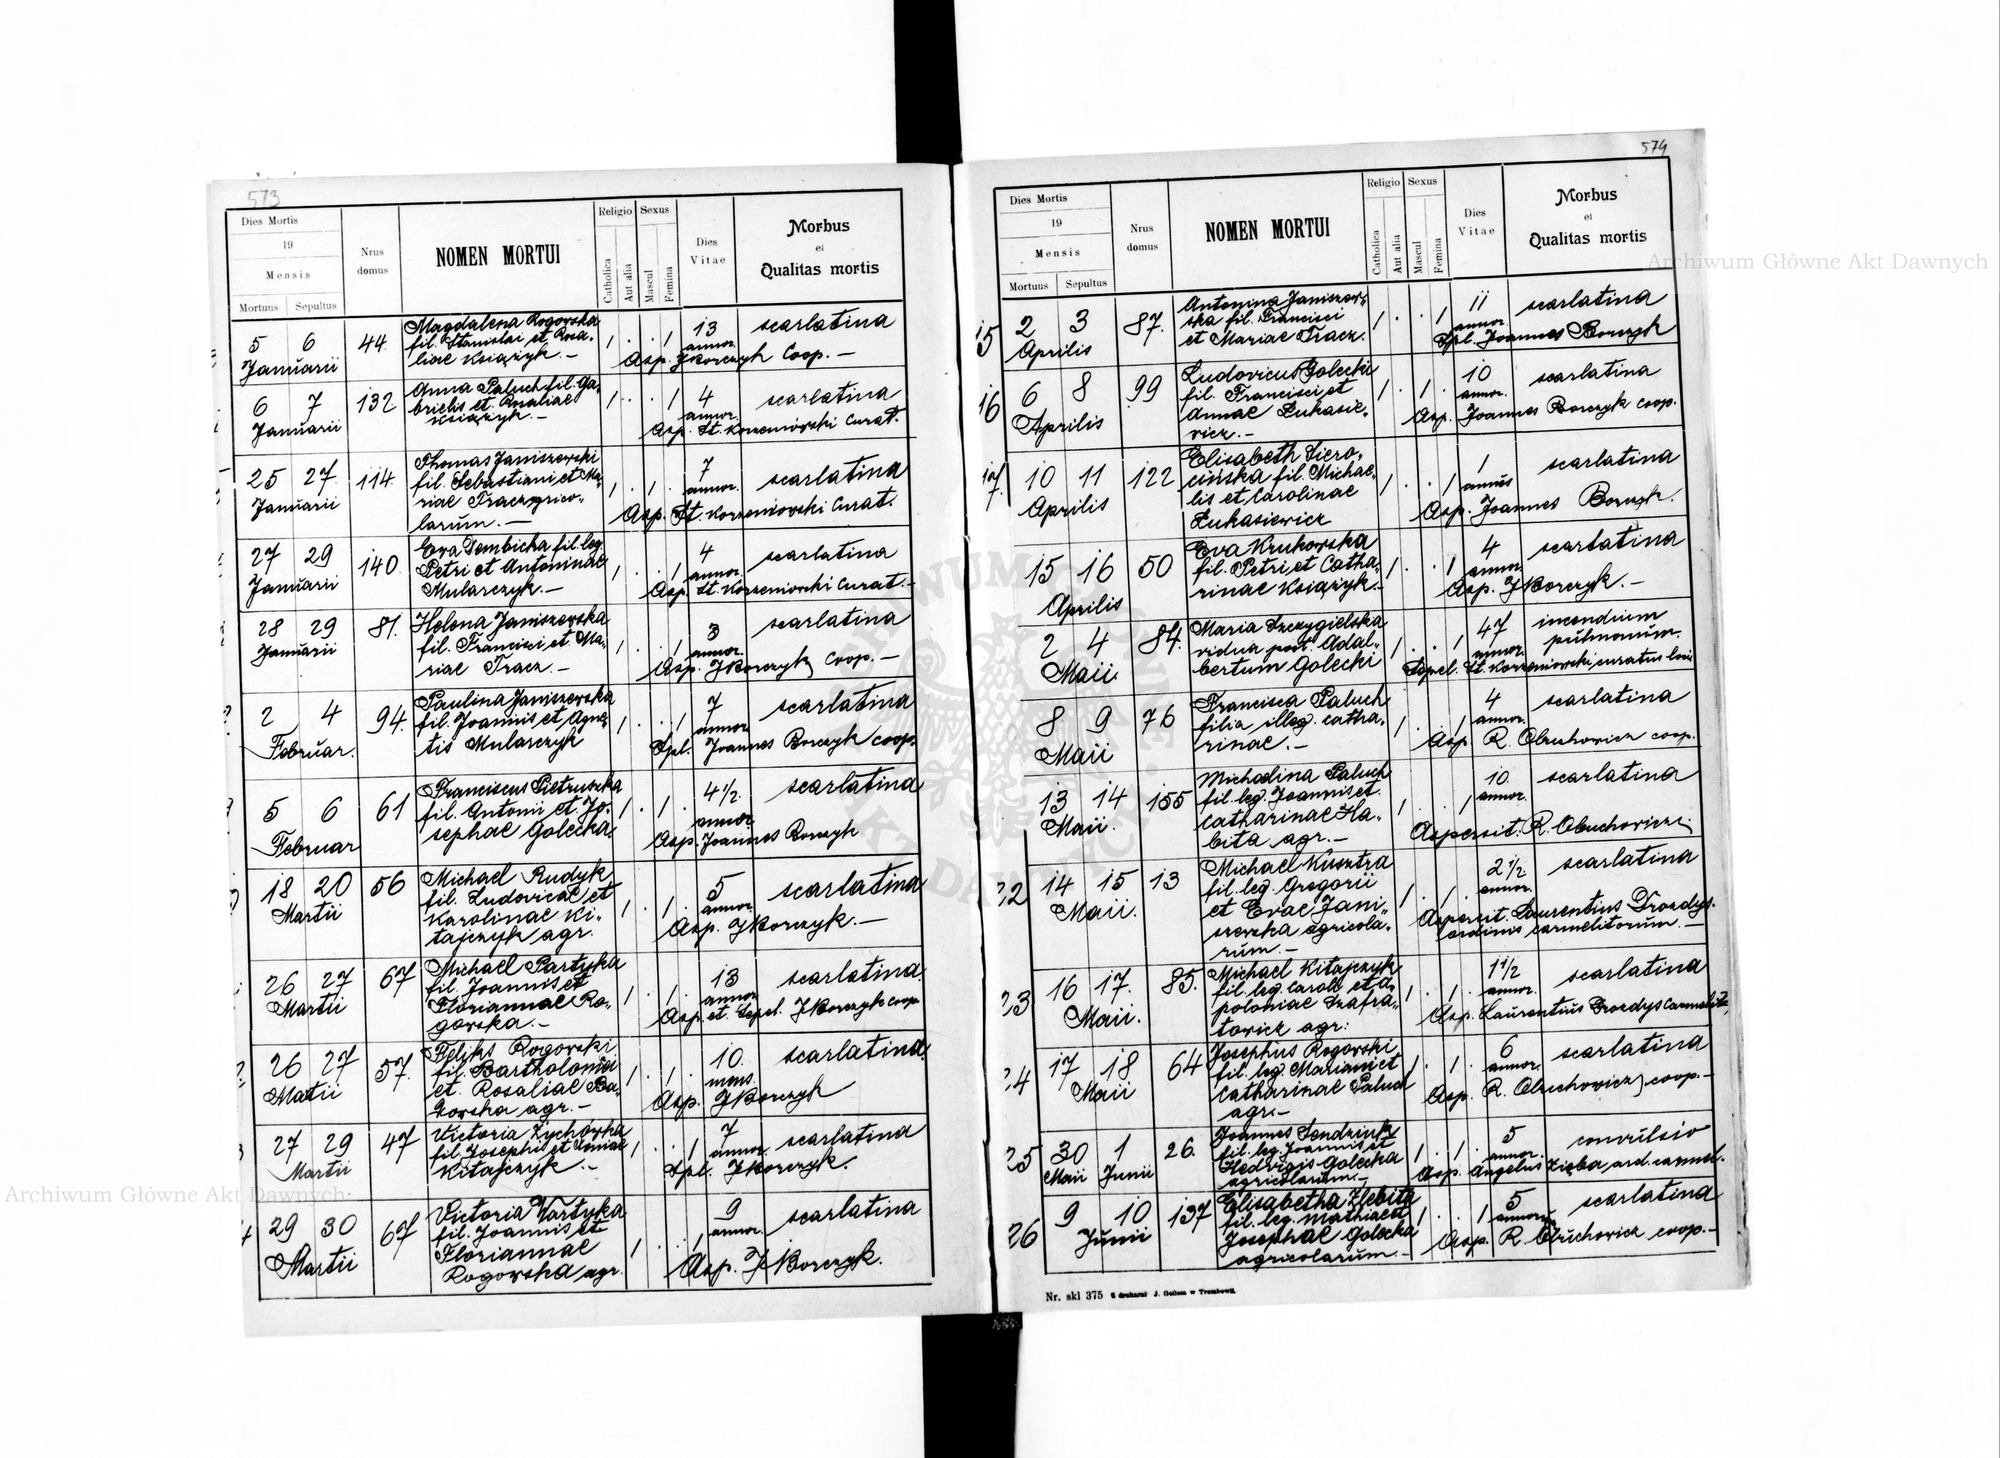 573
Dies Mortis
19
Mensis
Mortuus Sepultus
Nrus domus
NOMEN MORTUI
Religio
Catholica
Aut alia
Sexus
Mascul
Femina
Dies Vitae
Morbus
et
Qualitas mortis
5 6 Januarii 44
Magdalena Rogowska
fil. Stanislai et Rosa-
liae Książyk.-
13 annor. scarlatina
Asp. JBorczyk Coop.-
6 7 Januarii 132
Anna Paluch fil. Ga-
brielis et Rosaliae
Książyk.-
4 annor. scarlatina
Asp. St. Korzeniowski Curat.
25 27 Januarii 114
Thomas Janiszewski
fil. Sebastiani et Ma-
riae Tracz agrico-
larum.-
7 annor. scarlatina
Asp. St. Korzeniowski Curat.
27 29 Januarii 140
Eva Dembicka fil. leg.
Petri et Antoninae
Mularczyk.-
4 annor. scarlatina
Asp. St. Korzeniowski Curat.-
28 29 Januarii 81.
Helena Janiszewska
fil. Francisci et Ma-
riae Tracz-
3 annor. scarlatina
Asp. JBorczyk Coop.-
2 4 Februar. 94.
Paulina Janiszewska
fil. Joannis et Agne-
tis Mularczyk
7 annor. scarlatina
Spl. Joannes Borczyk coop.
5 6 Februar 61
Franciscus Pietruszka
fil. Antonii et Jo-
sephae Golecka.
4 1/2 annor. scarlatina
Asp. Joannes Borczyk
18 20 Martii 56
Michael Rudyk
fil. Ludovicae et
Karolinae Ki-
tajczyk agr.
5 annor. scarlatina
Asp. JBorczyk.-
26 27 Martii 67
Michael Partyka
fil. Joannis et
Floriannae Ro-
gowska.-
13 annor. scarlatina
Asp. et Sepel. JBorczyk coop
26 27 Martii 57.
Feliks Rogowski
fil. Bartholomia
et Rosaliae Ba-
worska agr.-
10. mens. scarlatina
Asp. JBorczyk
27 29 Martii 47
Victoria Zychowska
fil. Josephi et
Kitajczyk.-
7 annor. scarlatina
Spl. JBorczyk.
29 30 Martii 67
Victoria Partyka
fil. Joannis et
Floriannae
Rogowska agr.
9 annor. scarlatina
Asp. JBorczyk.
574
Dies Mortis
19
Mensis
Mortuus Sepultus
Nrus domus
NOMEN MORTUI
Religio
Catholica
Aut alia
Sexus
Mascul
Femina
Dies Vitae
Morbus
et
Qualitas mortis
15 2 3 Aprilis 87.
Antonina Janiszew-
ska fil. Francisci
et Mariae Tracz.
11 annor. scarlatina
Spl. Joannes Borczyk
16 6 8 Aprilis 99
Ludovicus Golecki
fil. Francisci et
Annae Łukasie-
wicz.-
10 annor. scarlatina
Asp. Joannes Borczyk coop.
17. 10 11 Aprilis 122
Elisabeth Siero-
cińska fil. Michae-
lis et Carolinae
Łukasiewicz
1 annus scarlatina
Asp. Joannes Borczyk.
15 16 Aprilis 50
Eva Krukowska
fil. Petri et Catha-
rinae Książyk.-
4 annor. scarlatina
Asp. JBorczyk.-
2 4 Maii. 84.
Maria Szczygielska
vidua post. Adal-
bertum Golecki
47 annor. incendium
pulmonum.
Sepel. St. Korzeniowski, curatus loci
8 9 Maii 76
Francisca Paluch
filia illeg. Catha-
rinae.-
4 annor. scarlatina
Asp. R. Obuchowicz coop.
13 14 Maii. 155
Michalina Paluch
fil. leg. Joannis et
Catharinae Ha-
bita agr.-
10. annor. scarlatina
Aspersit. R. Obuchowicz.
22 14 15 Maii. 13
Michael Kusztra
fil. leg. Gregorii
et Evae Jani-
szewska agricola-
rum.-
2 1/2 annor. scarlatina
Aspersit. Laurentius Drozdys.
ordinis carmelitorum.-
23 16 17. Maii. 85.
Michael Kitajczyk
fil. leg. Caroli et A-
poloniae Szafra-
towicz agr:
1 1/2 annor. scarlatina
Asp. Laurentius Drozdys Carmelita,
24 17 18 Maii 64
Josephus Rogowski
fil. leg. Mariani et
Catharinae Paluch
agr.-
6 annor. scarlatina
Asp. R. Obuchowicz, coop.-
25 30 Maii 1 Junii 26.
Joannes Sendziuk
fil. leg. Joannis et
Hedvigis Golecka
agricolarum.-
5 annor. convulsio
Asp. Angelus Zięba ord. carmel.
26 9 10 Junii 137
Elisabetha Zlebita
fil. leg. Mathiae et
Josephae Golecka
agricolarum.-
5 annor. scarlatina
Asp. R. Obuchowicz coop.-
Nr. skl 375 Z drukarni J. Gellesa w Trembowli.
Archiwum Główne Akt Dawnych
Archiwum Główne Akt Dawnych